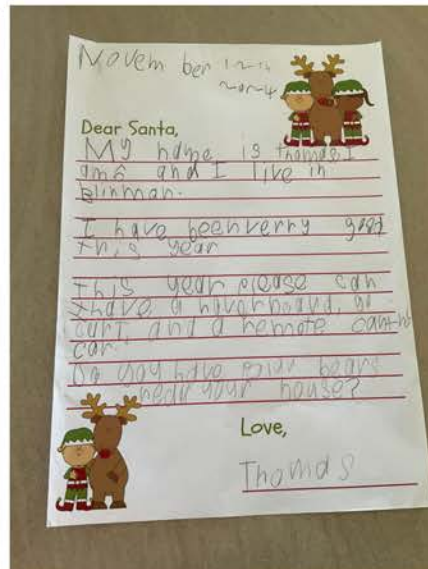 Novem ber
Dear Santa,
My name is thomas I
am 6 and I live in
Blinman.
I have been verry good
this year
This year please can
I have a hoverboard, go
cart, and a remote
car.
Do you have polar bears
near your house?
Love,
Thomas